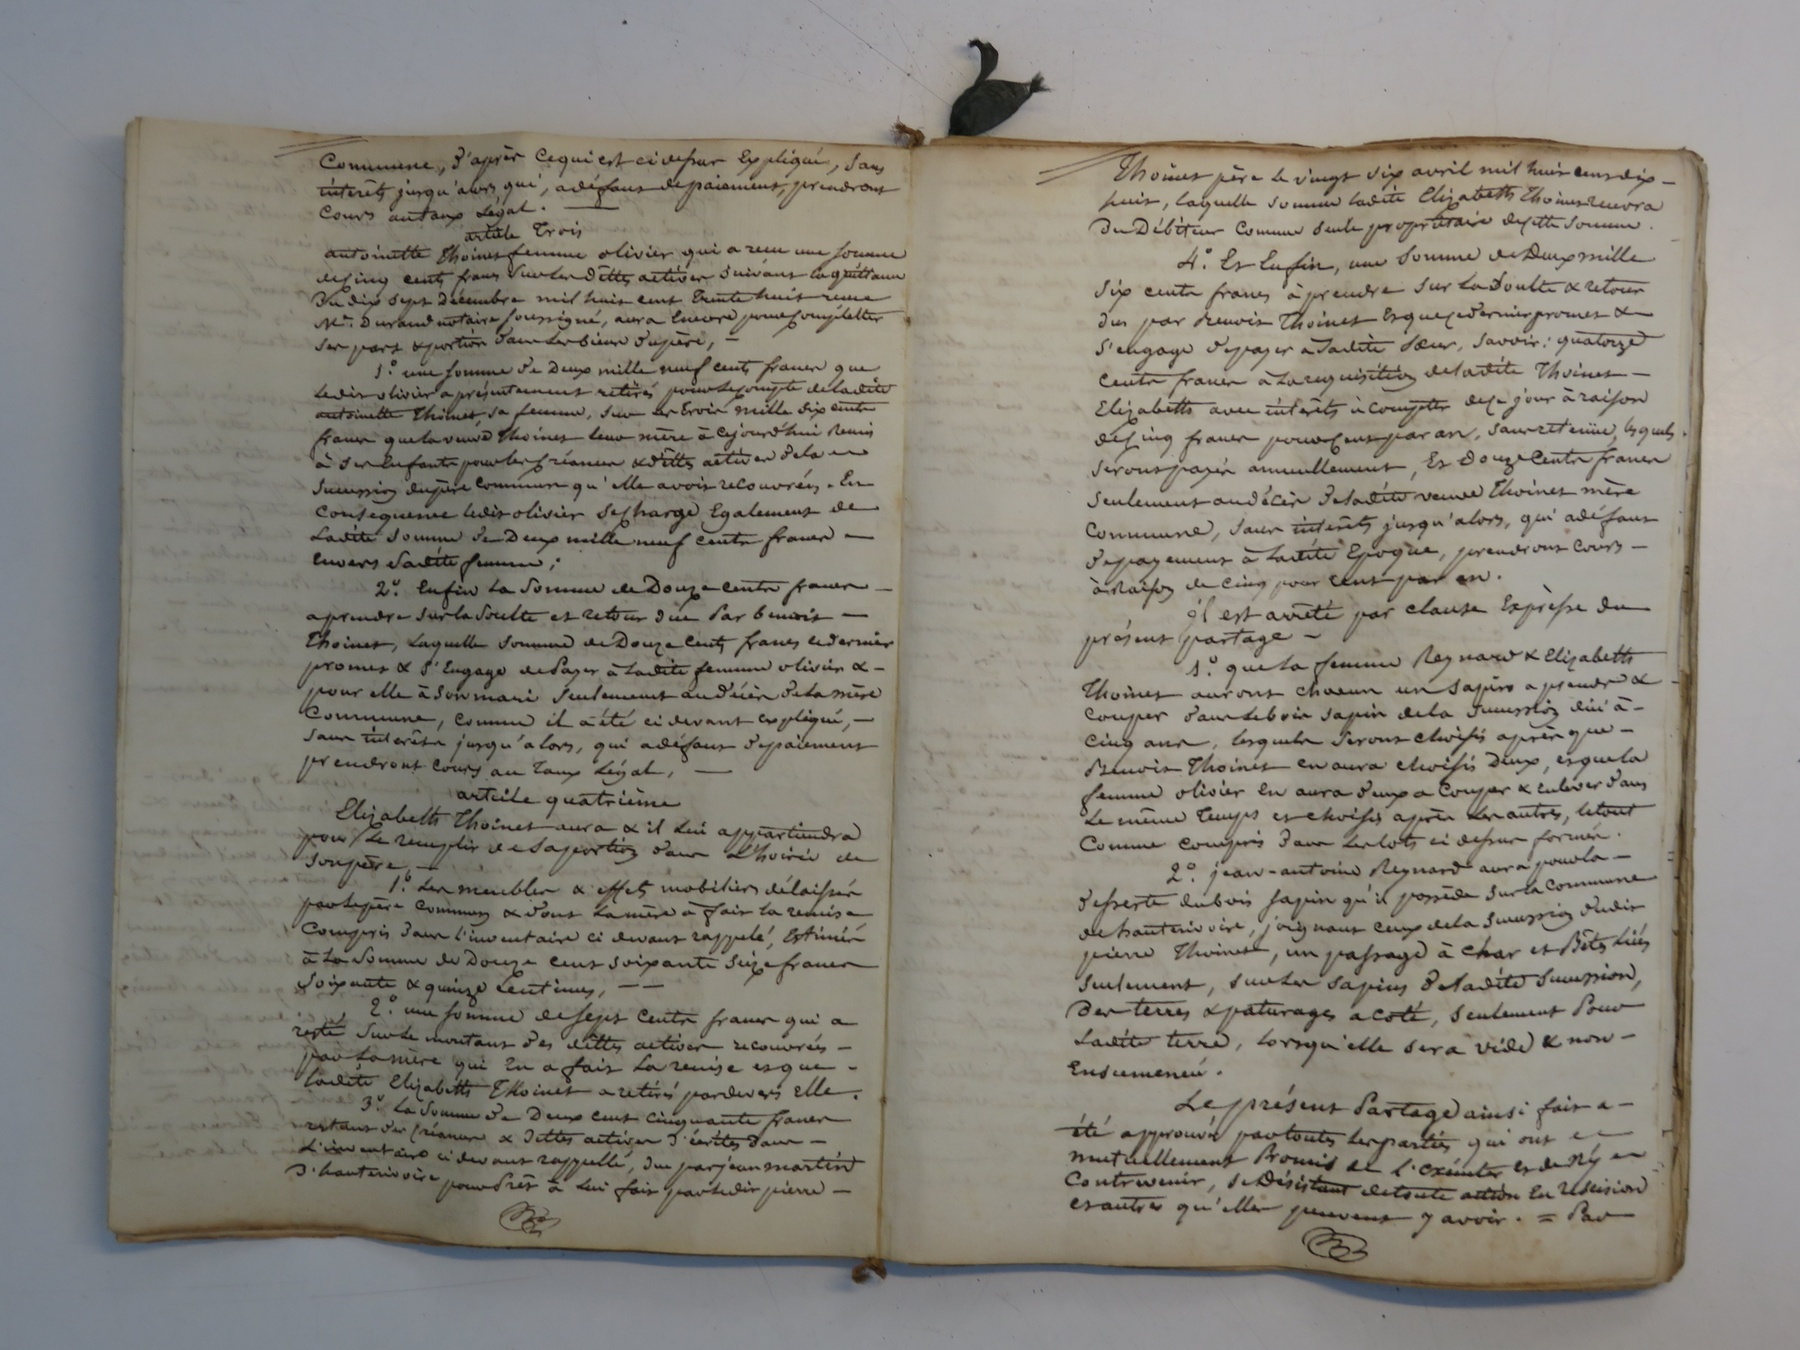 Commune, d'après cequi est ci dessus Expliqué, sans
intérêts jusqu'alors qui, adéfaut depaiement, prendront
Cours autaux Légal. —
article Trois
antoinette Thoinet femme olivier qui a reçu une somme
decinq cents francs sur les dettes actives suivant la quittance
du dix sept décembre mil huit cent trente huit reçue
Me. Durand notaire soussigné, aura Encore pour Completter
ses part & portion dans les biens dupère, —
1.° une somme de Deux mille neuf cents francs que
ledit olivier a présentement retirés pour le compte deladite
antoinette Thoinet, sa femme, sur les Trois mille six cents
francs que la veuve Thoinet leur mère à cejourd'hui Remis
à ses Enfants pour les créances & dettes actives dela
succession dupère commun qu'elle avoit recouvrées. En
Conséquence ledit olivier se charge Egalement de
Ladite somme de Deux mille neuf cents francs —
Envers Sadite femme;
2.° Enfin La Somme de Douze cents francs —
aprendre sur la Soulte et retour due Par benoit —
Thoinet, Laquelle somme de Douze Cents francs ce dernier
promet & s'Engage de Payer à Ladite femme olivier & —
pour elle à son mari seulement au décès de la mère
Commune, comme il a été ci devant expliqué, —
sans intérêts jusqu'alors, qui adéfaut depaiement
prendront Cours au Taux Légal, —
article quatrième
Elizabeth Thoinet aura & il Lui appartiendra
pour Le remplir de saportion dans L'hoirie de
sonpère, —
1.° Les meubles & effets mobiliers délaissés
par lepère Commun & dont Lamère a fait la remise
Compris dans l'inventaire ci devant rappelé, Estimés
à La Somme de Douze cent soixante seize francs
soixante & quinze Centimes, — —
2.° une somme desept Cents francs qui a
resté sur le montant des dettes actives recouvrées —
par Lamère qui En a fait La remise et que —
ladite Elizabeth Thoinet a retirés pardevers elle.
3.° La Somme de Deux cent cinquante francs
restant des créances & dettes actives décrites dans —
L'inventaire ci devant rappellé, due par jean martin
D'hauterivoire pour Prêt à Lui fait par ledit pierre —
Thoinet père Le vingt six avril mil huit cent dix —
huit, laquelle somme ladite Elizabeth Thoinet recevra
Du Débiteur Comme seule propriétaire de cette somme.
4.° Et Enfin, une Somme de Deux mille
six cents francs à prendre sur La Soulte & retour
dus par Benoit Thoinet Lequel ce dernier promet &
s'engage depayer à Ladite sœur, savoir: quatorze
Cents francs à La requisition deladite Thoinet —
Elizabeth avec intérêts à Compter dece jour à raison
decinq francs pour Cent par an, sans retenüe, lesquels
seront payés annuellement, Et Douze Cents francs
seulement au décès deladite veuve Thoinet mère
Commune, sans intérêts jusqu'alors, qui adéfaut
depayement à Ladite Epoque, prendront Cours —
à Raison de Cinq pour cent par an.
Il est arrêté par clause Expresse du
présent partage —
1.° que La femme Reynard & Elizabeth
Thoinet auront chacun un sapin aprendre &
couper dans le bois sapin dela succession d'ici à —
cinq ans, lesquels seront choisis après que —
Benoit Thoinet en aura choisis Deux, et que la
femme olivier En aura deux a Couper & enlever dans
Le même Temps et choisis après Les autres, le tout
Comme compris dans les lots ci dessus formés.
2.° jean-antoine Reynard aura pour la —
desserte dubois sapin qu'il possède sur la Commune
de hauterivoire, joignant ceux dela succession dudit
pierre Thoinet, un passage à char et Bêtes Liées
seulement, sur Les sapins deladite succession,
Des terres & paturages à côté, seulement Pour
Ladite terre, lorsqu'elle sera vide & non —
Ensemencée.
Le présent Partage ainsi fait a —
été approuvé par toutes les parties qui ont
mutuellement Promis de L'exécuter et de N'y
Contrevenir, se Désistant detoute action En rescision
et autres qu'elles peuvent y avoir. = Par